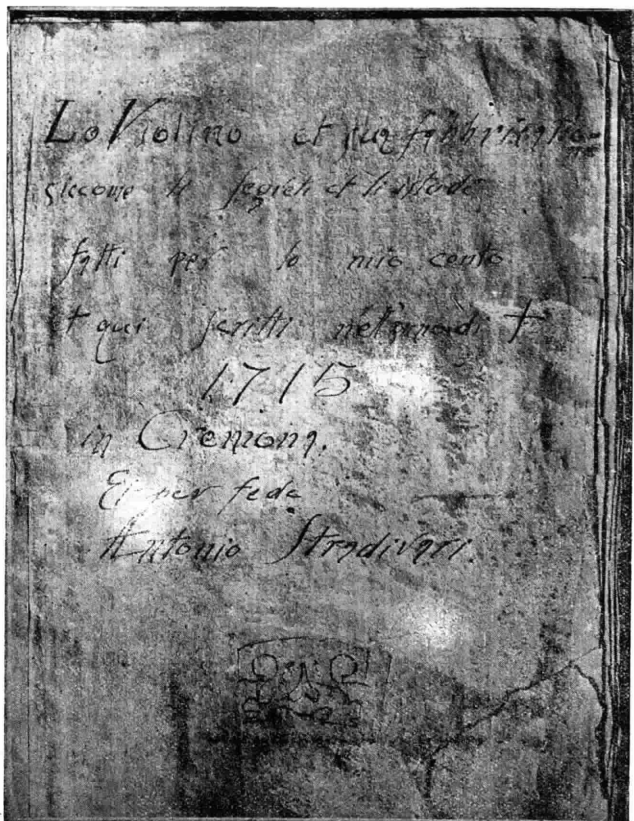 Lo Violino et sua fabbricatio=
ne
siccome li segreti et li
fatti per lo mio conto
† qui scritti nel anno di †
1715
in Cremona.
Et per fede
Antonio Stradivari.